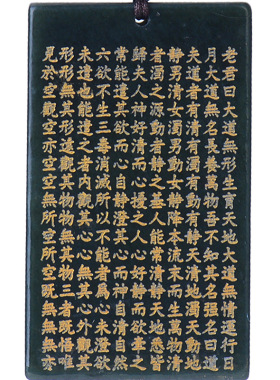 老君曰大道無形生育天地大道無情運行日
月大道無名長養萬物吾不知其名強名曰道
夫道者有清有濁有動有靜天清地濁天動地
靜男清女濁男動女靜降本流末而生萬物清
者濁之源動者靜之基人能常清靜天地悉皆
歸夫人神好清而心擾之人心好靜而欲牽之
常能遣其欲而心自靜澄其心而神自清自然
六欲不生三毒消滅所以不能者為心未澄欲
未遣也能遣之者內觀其心心無其心外觀其
形形無其形遠觀其物物無其物三者既悟唯
見於空觀空亦空空無所空所空既無無無亦